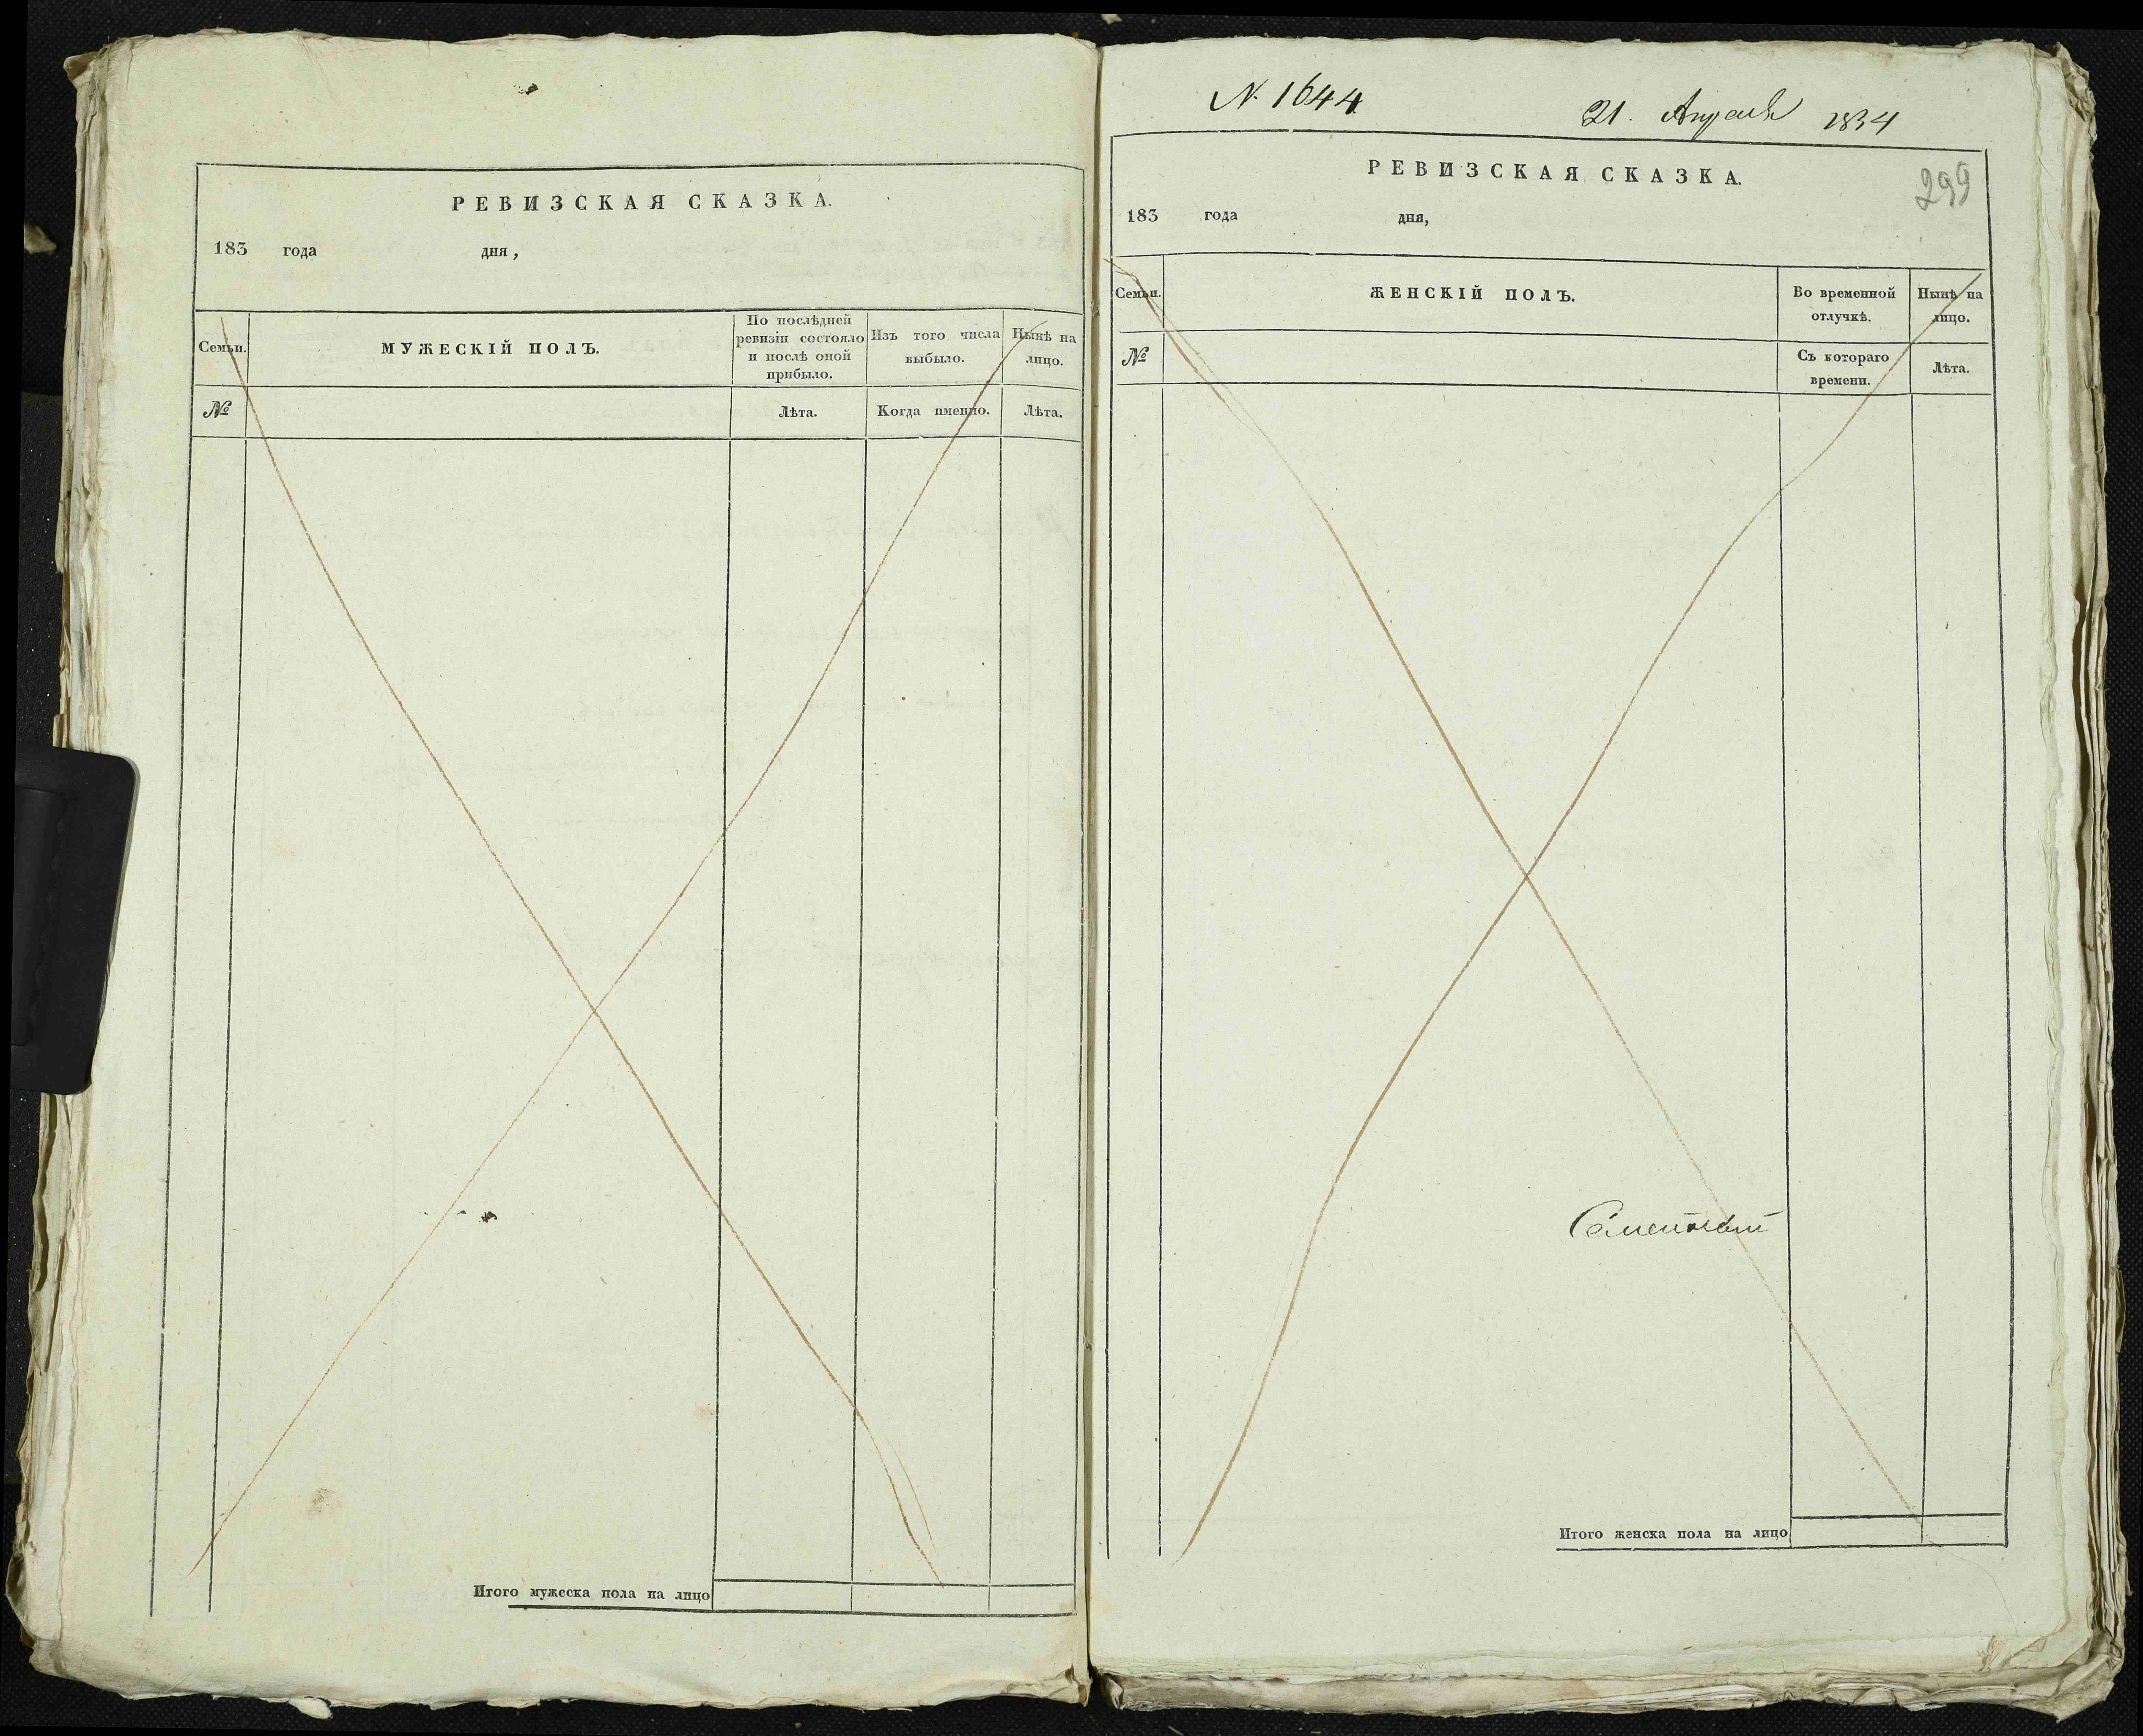 РЕВИЗСКАЯ СКАЗКА.
183 года дня,
Семьи.
МУЖЕСКІЙ ПОЛЪ.
По послѣдней
ревизіи состояло
и послѣ оной
прибыло.
Изъ того числа
выбыло.
Нынѣ на
лицо.
№
Лѣта.
Когда именно.
Лѣта.
Итого мужеска пола на лицо
N. 1644
21. Апреля 1834
РЕВИЗСКАЯ СКАЗКА.
299
183 года дня,
Семьи.
ЖЕНСКІЙ ПОЛЪ.
Во временной
отлучкѣ.
Нынѣ на
лицо.
№
Съ котораго
времени.
Лѣта.
Итого женска пола на лицо